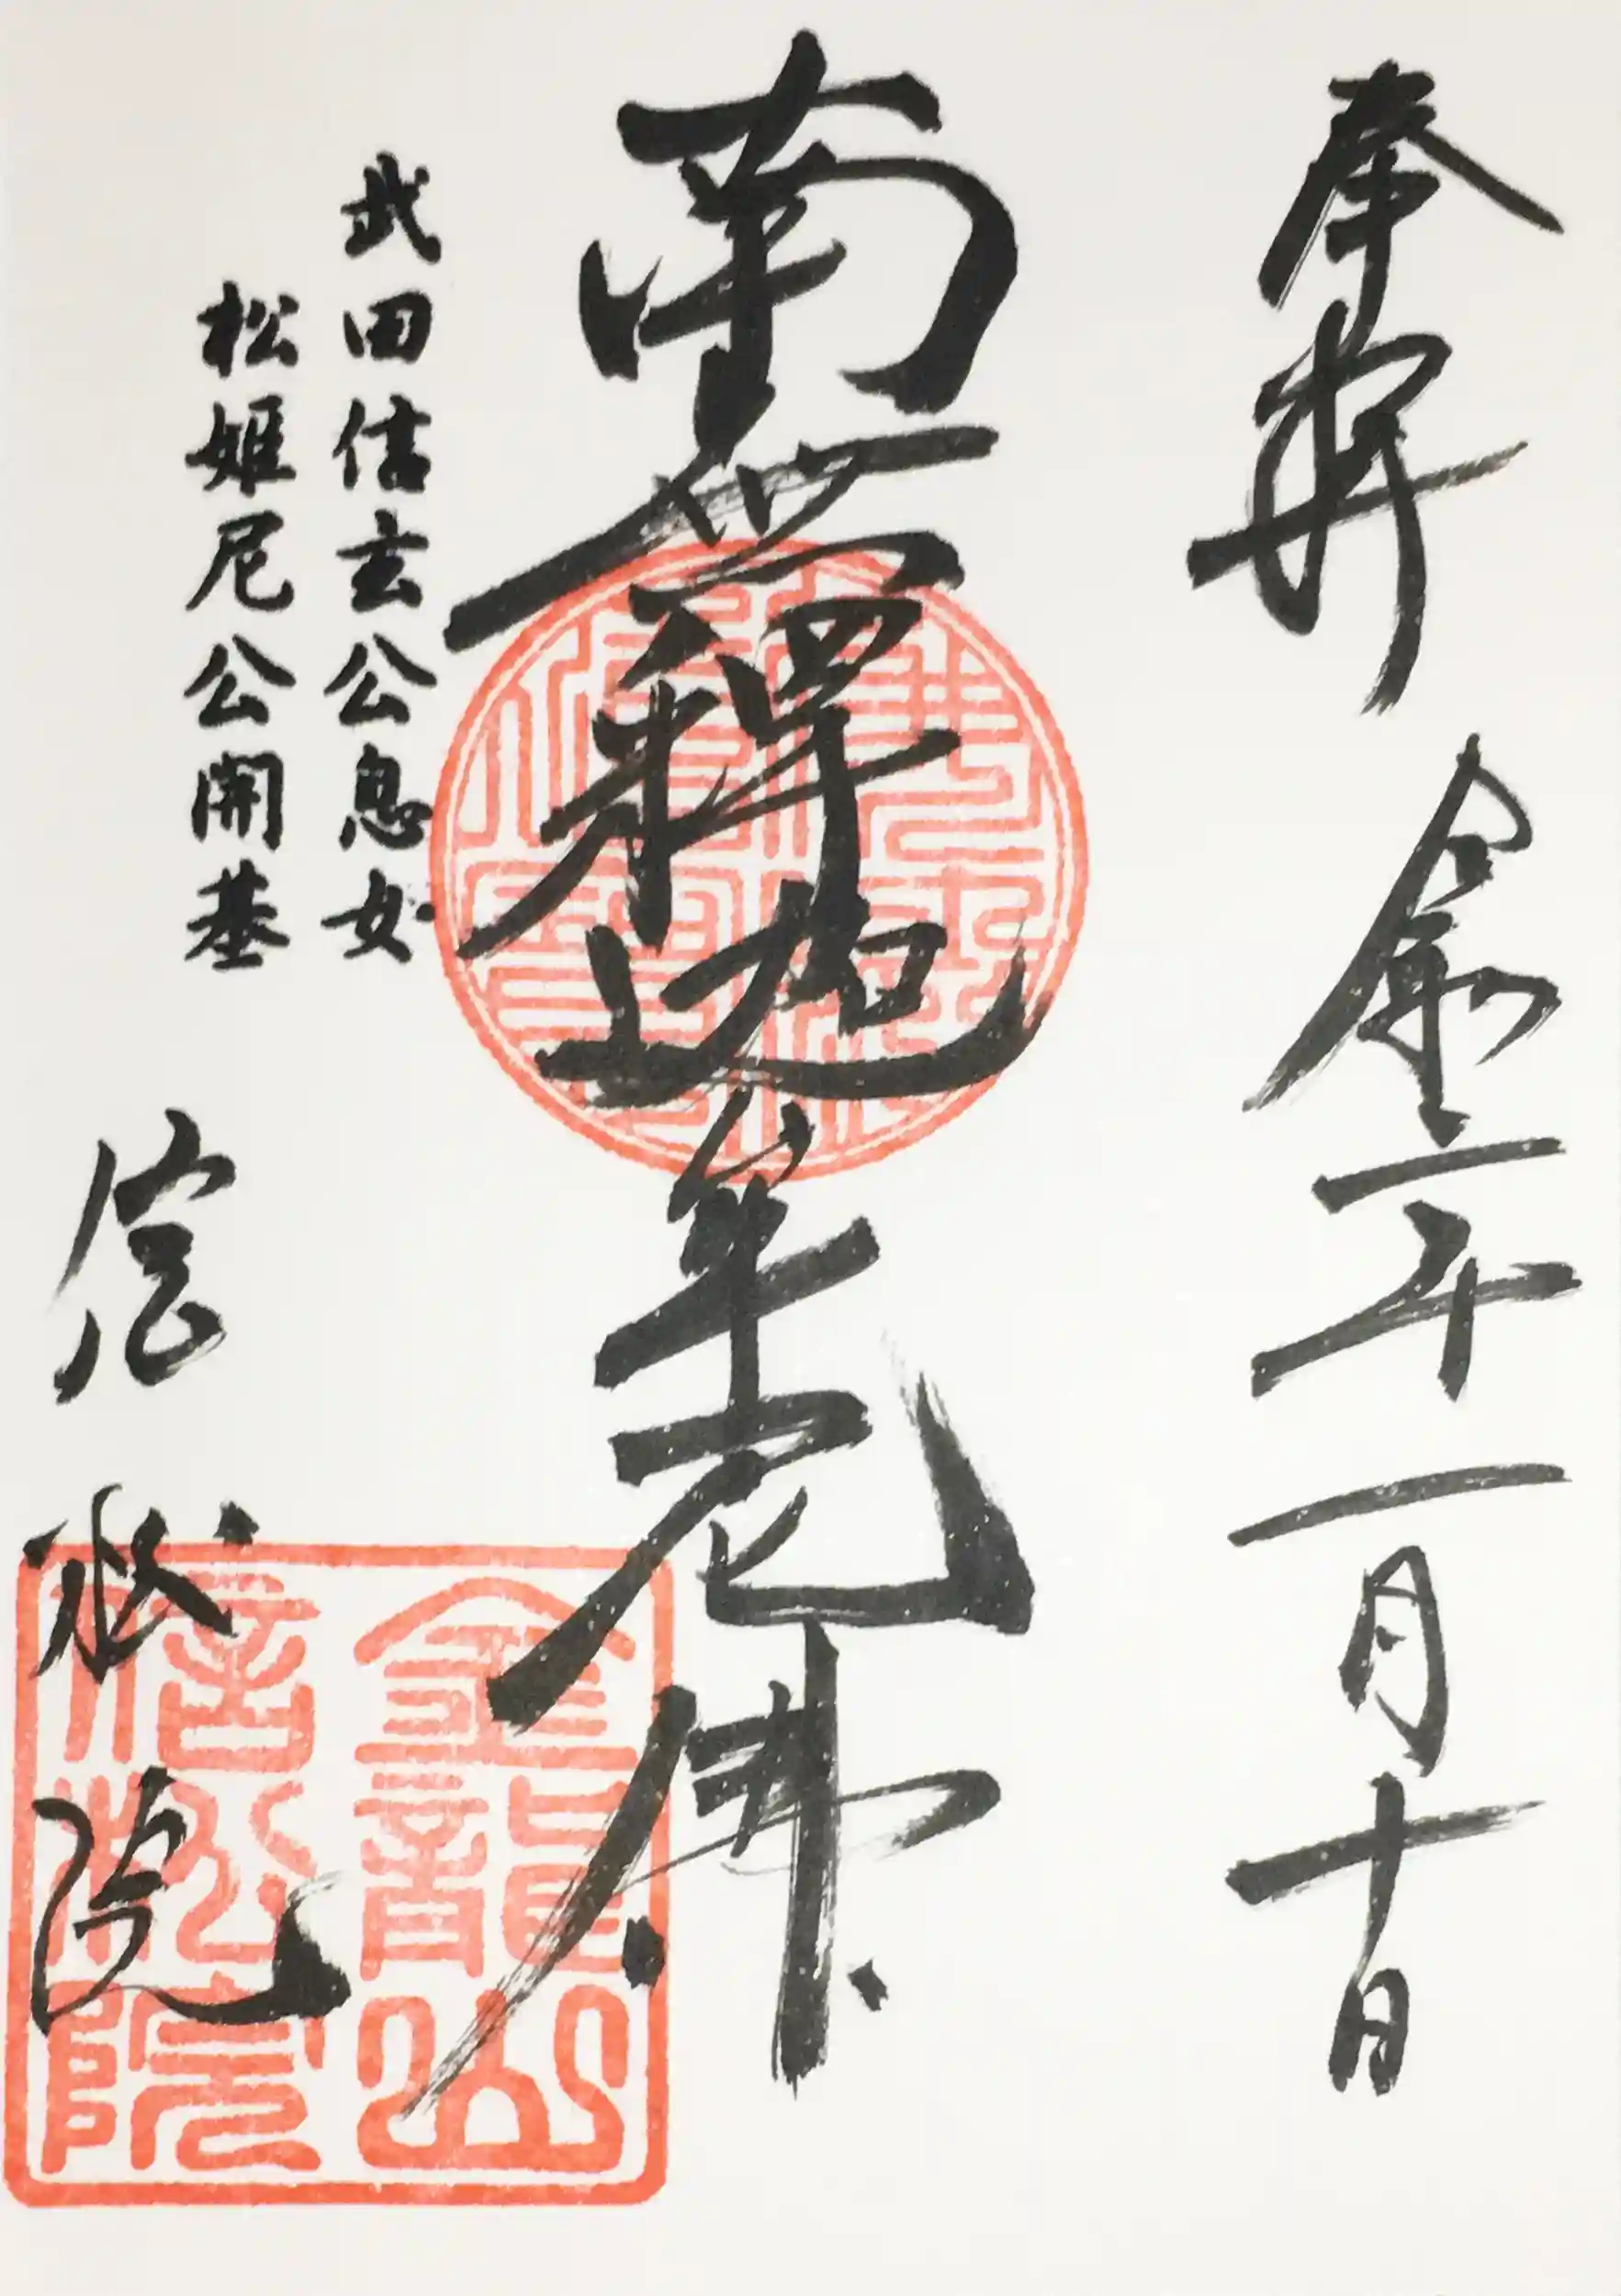 奉拝 令和二年一月十日
南無釋迦牟尼佛
武田信玄公息女
松姫尼公開基
信松院
金龍山
信松院